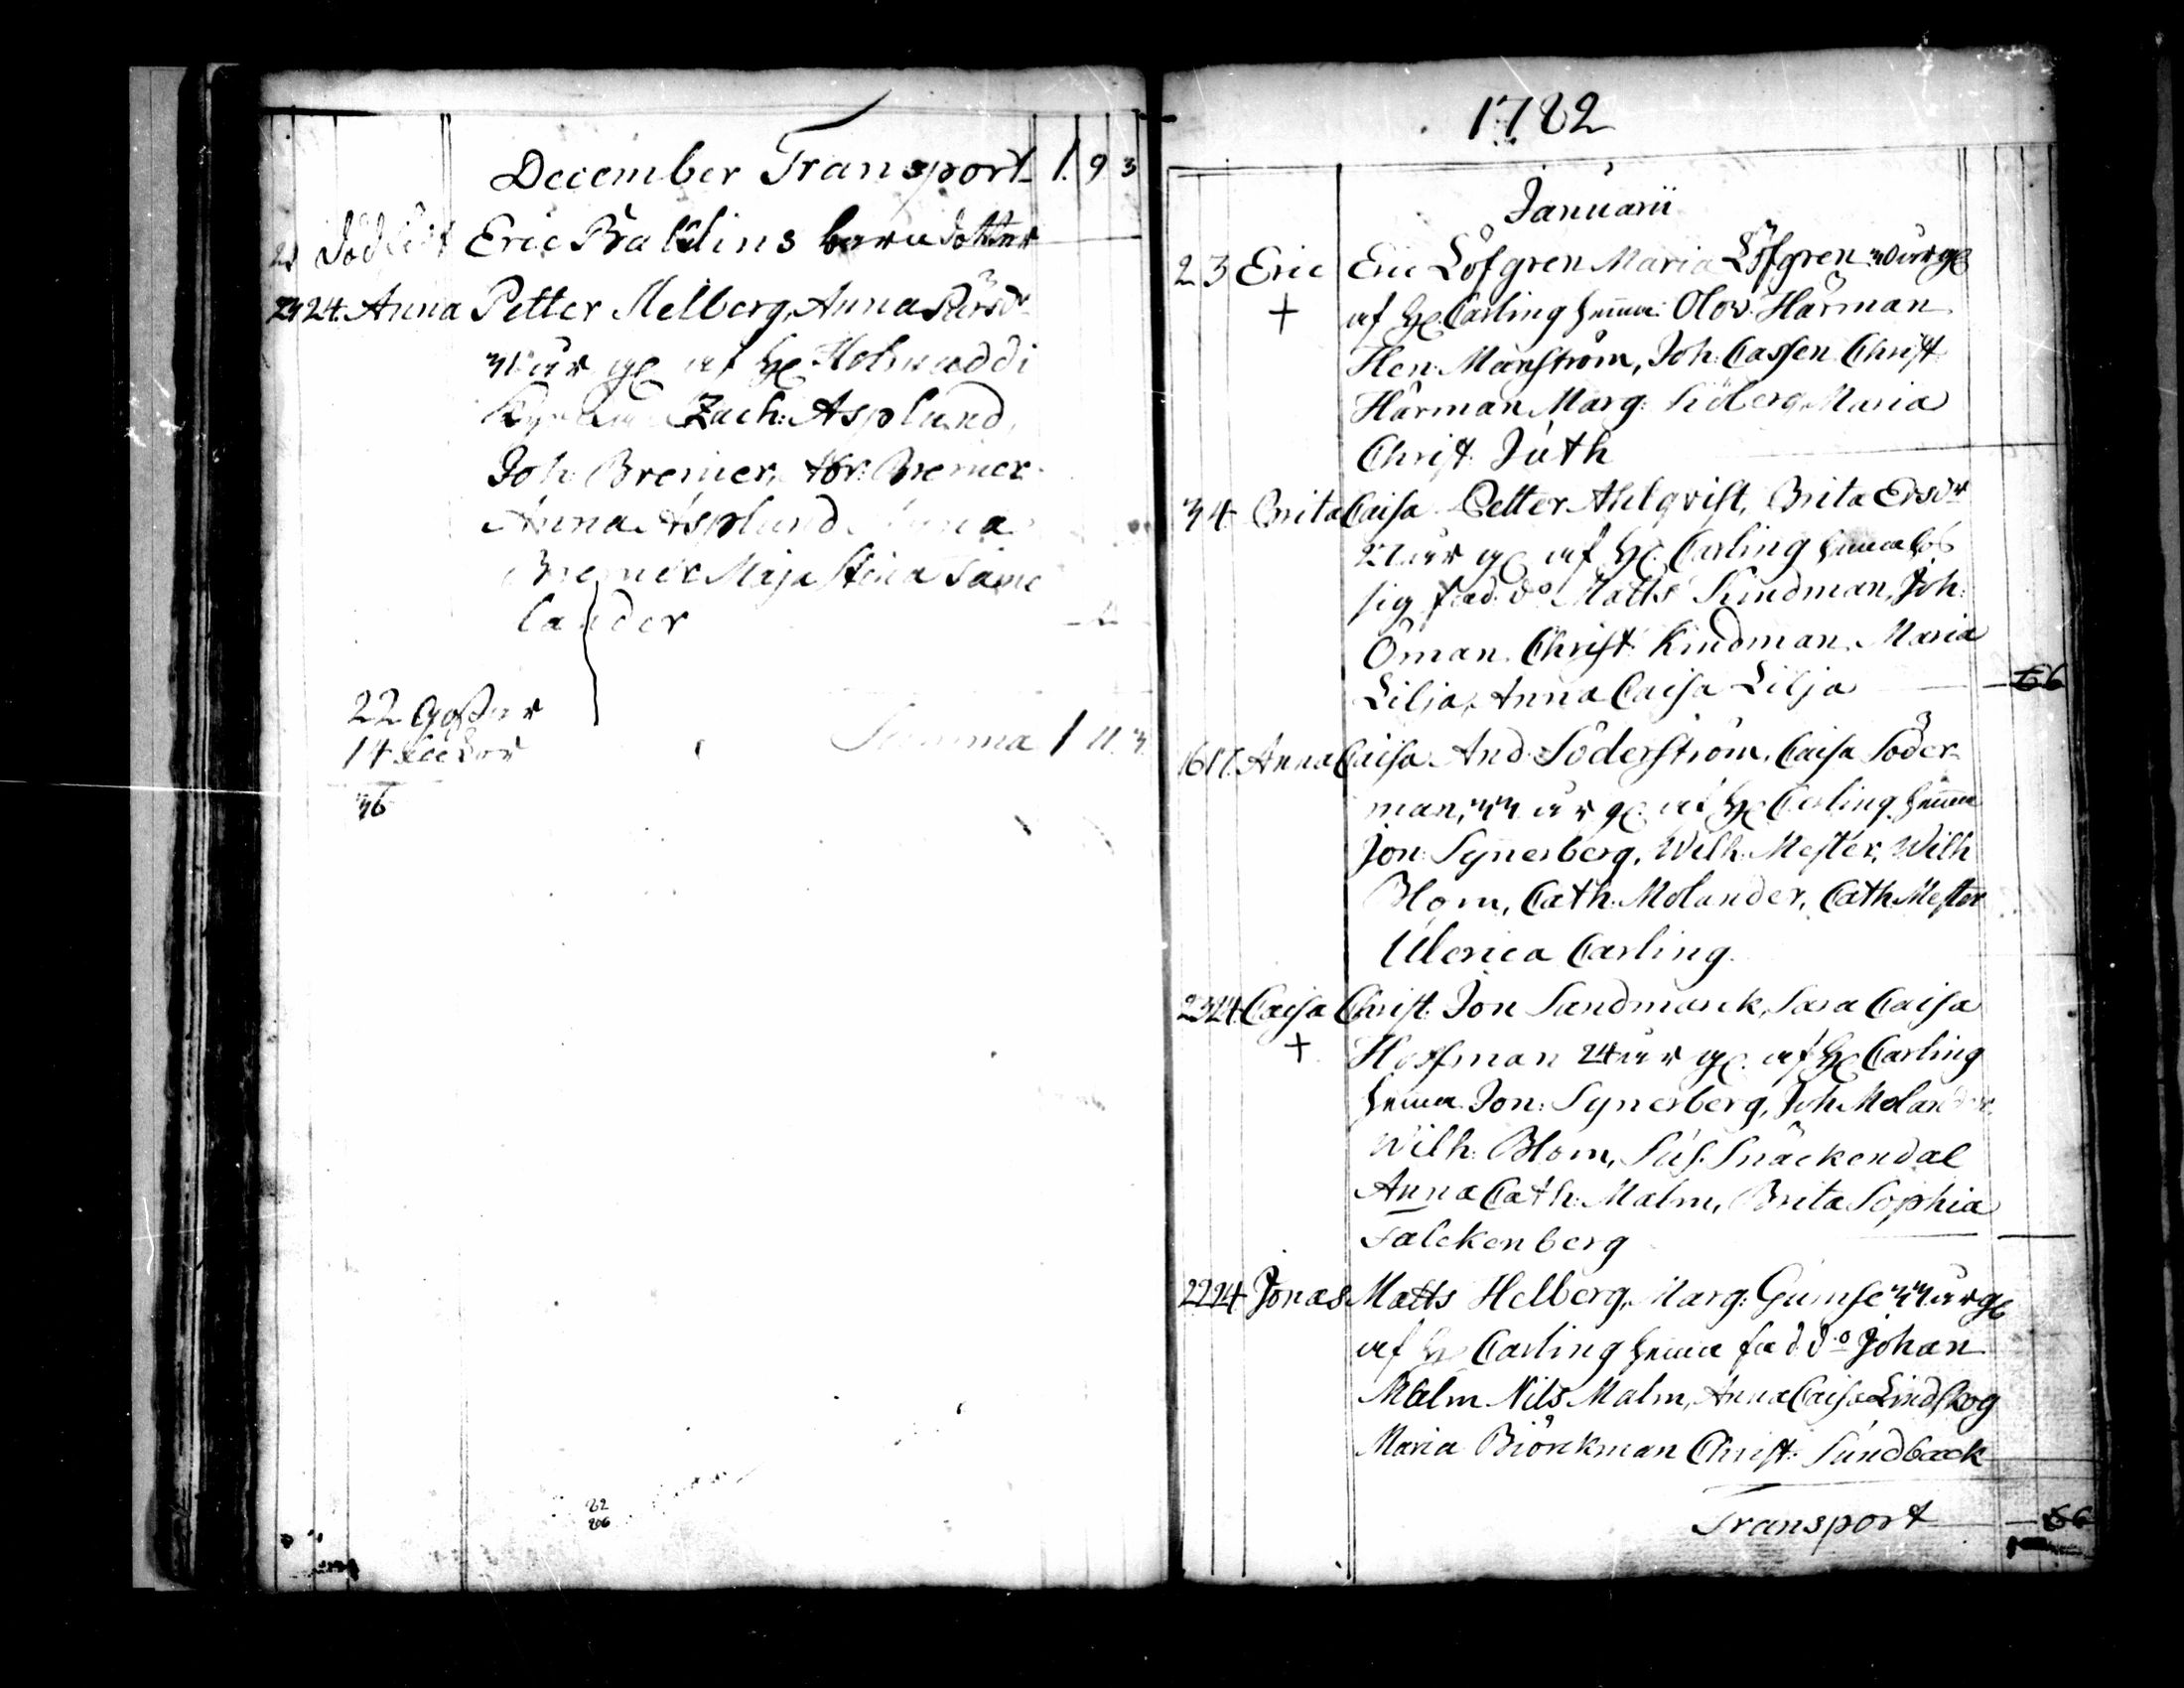 December Transport 1. 9 3
Eric Ballins barn dotter
24. Anna Petter Melberg, Anna
år af
Zach: Asplund,
Joh: Bremer, Abr: Bremer
Anna Asplund
Bremer Maja Stina
lander
22 Gossar
14 flickor
Summa 1 11. 3.
36
1782
Januarii
2 3 Eric Eric Löfgren Maria Löfgren
+ af H. Carling hemma: Olov: Hårman
Hen: Marström, Joh: Cassen Christ:
Hårman Marg: Siöberg, Maria
Christ. Juth
3 4 Brita Caisa Petter Ahlqvist, Brita Ersdr
år gl af H. Carling hemma hos
sig fad. do Matts Kindman, Joh:
Öman. Christ: Kindman. Maria
Lilja, Anna Caisa Lilja
16 17. Anna Caisa And. Söderström, Caisa Söder-
man, 33 år gl. af H. Carling hemma
Jon: Synerberg, Wilh: Mester, Wilh
Blom, Cath: Molander, Cath. Mester
Ulerica Carling.
23 24. Caisa Christ. Jon Sandmarck, Sara Caisa
+ Hoffman 24 år gl. af H. Carling
hemma. Jon: Synerberg, Joh. Molander
Wilh: Blom, Sus. Snäckendal
Anna Cath: Malm, Brita Sophia
Falckenberg
22 24 Jonas Matts Helberg, Marg: Gumse 33 år gl
af H. Carling hemma fad. do Johan
Malm Nils Malm, Anna Caisa Lindskog
Maria Biörkman Christ: Sundback
Transport